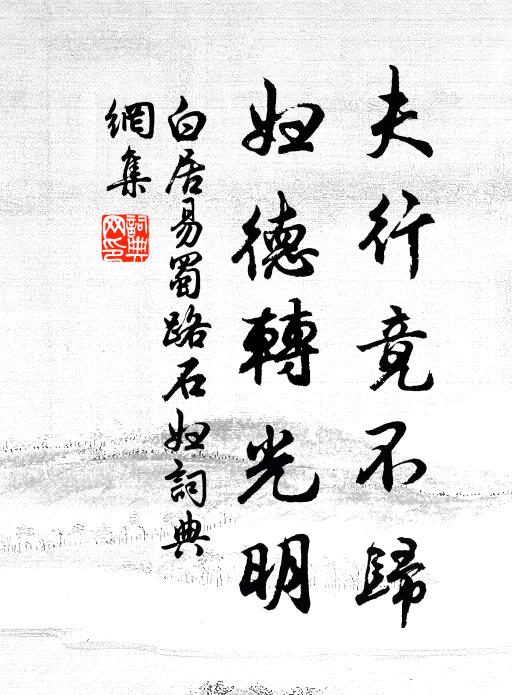 夫行竟不歸
妇德轉光明
白居易蜀路石妇詞典
網集
詞典网印